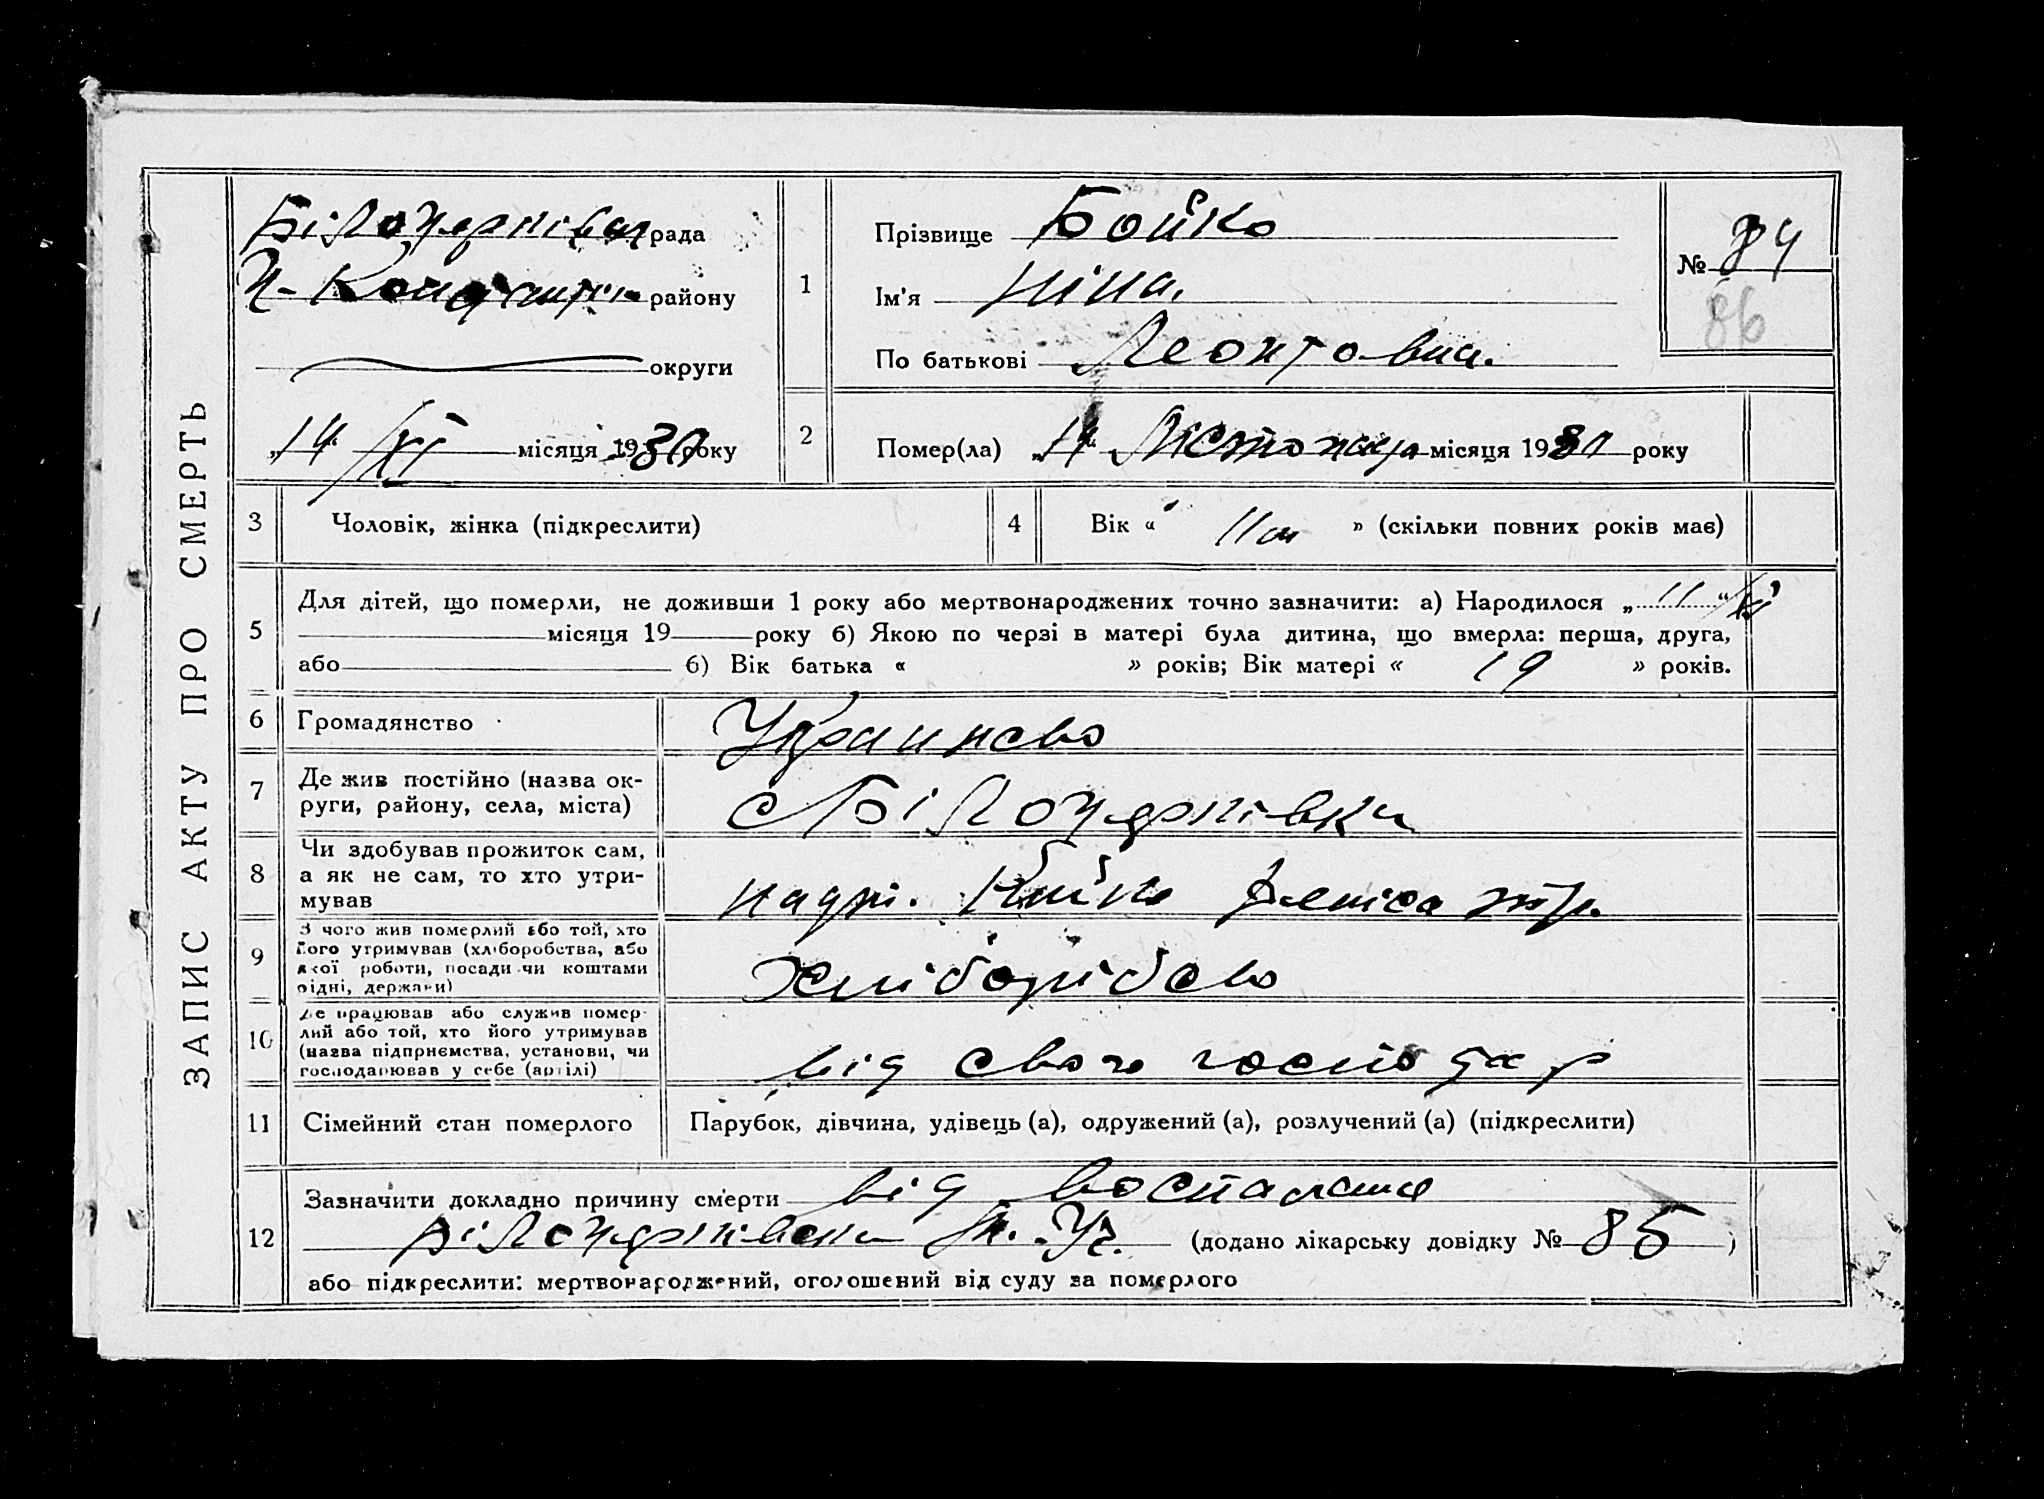 ЗАПИС АКТУ ПРО СМЕРТЬ
Білочернівськ рада
району
округи
„14“ XI місяця 1930 року
1
Прізвище Бойко
Ім'я Ніна.
По батькові Леонтовна.
№ 84
86
2
Помер(ла) „14“ Листопада місяця 1930 року
3 Чоловік, жінка (підкреслити)
4 Вік « 11 » (скільки повних років має)
5
Для дітей, що померли, не доживши 1 року або мертвонароджених точно зазначити: а) Народилося „11“
місяця 19 року б) Якою по черзі в матері була дитина, що вмерла: перша, друга,
або б) Вік батька « » років; Вік матері « 19 » років.
6 Громадянство Украинсво
7 Де жив постійно (назва ок-
руги, району, села, міста)
с Білочернівка
8 Чи здобував прожиток сам,
а як не сам, то хто утри-
мував
9 З чого жив померлий або той, хто
його утримував (хліборобства, або
якої роботи, посади чи коштами
рідні, держави)
Хліборобсво
10 Де працював або служив помер-
лий або той, хто його утримував
(назва підприємства, установи, чи
господарював у себе (артілі)
від свого господар
11 Сімейний стан померлого Парубок, дівчина, удівець (а), одружений (а), розлучений (а) (підкреслити)
12
Зазначити докладно причину смерти від воспаления
Білочернівська (додано лікарську довідку № 85)
або підкреслити: мертвонароджений, оголошений від суду за померлого